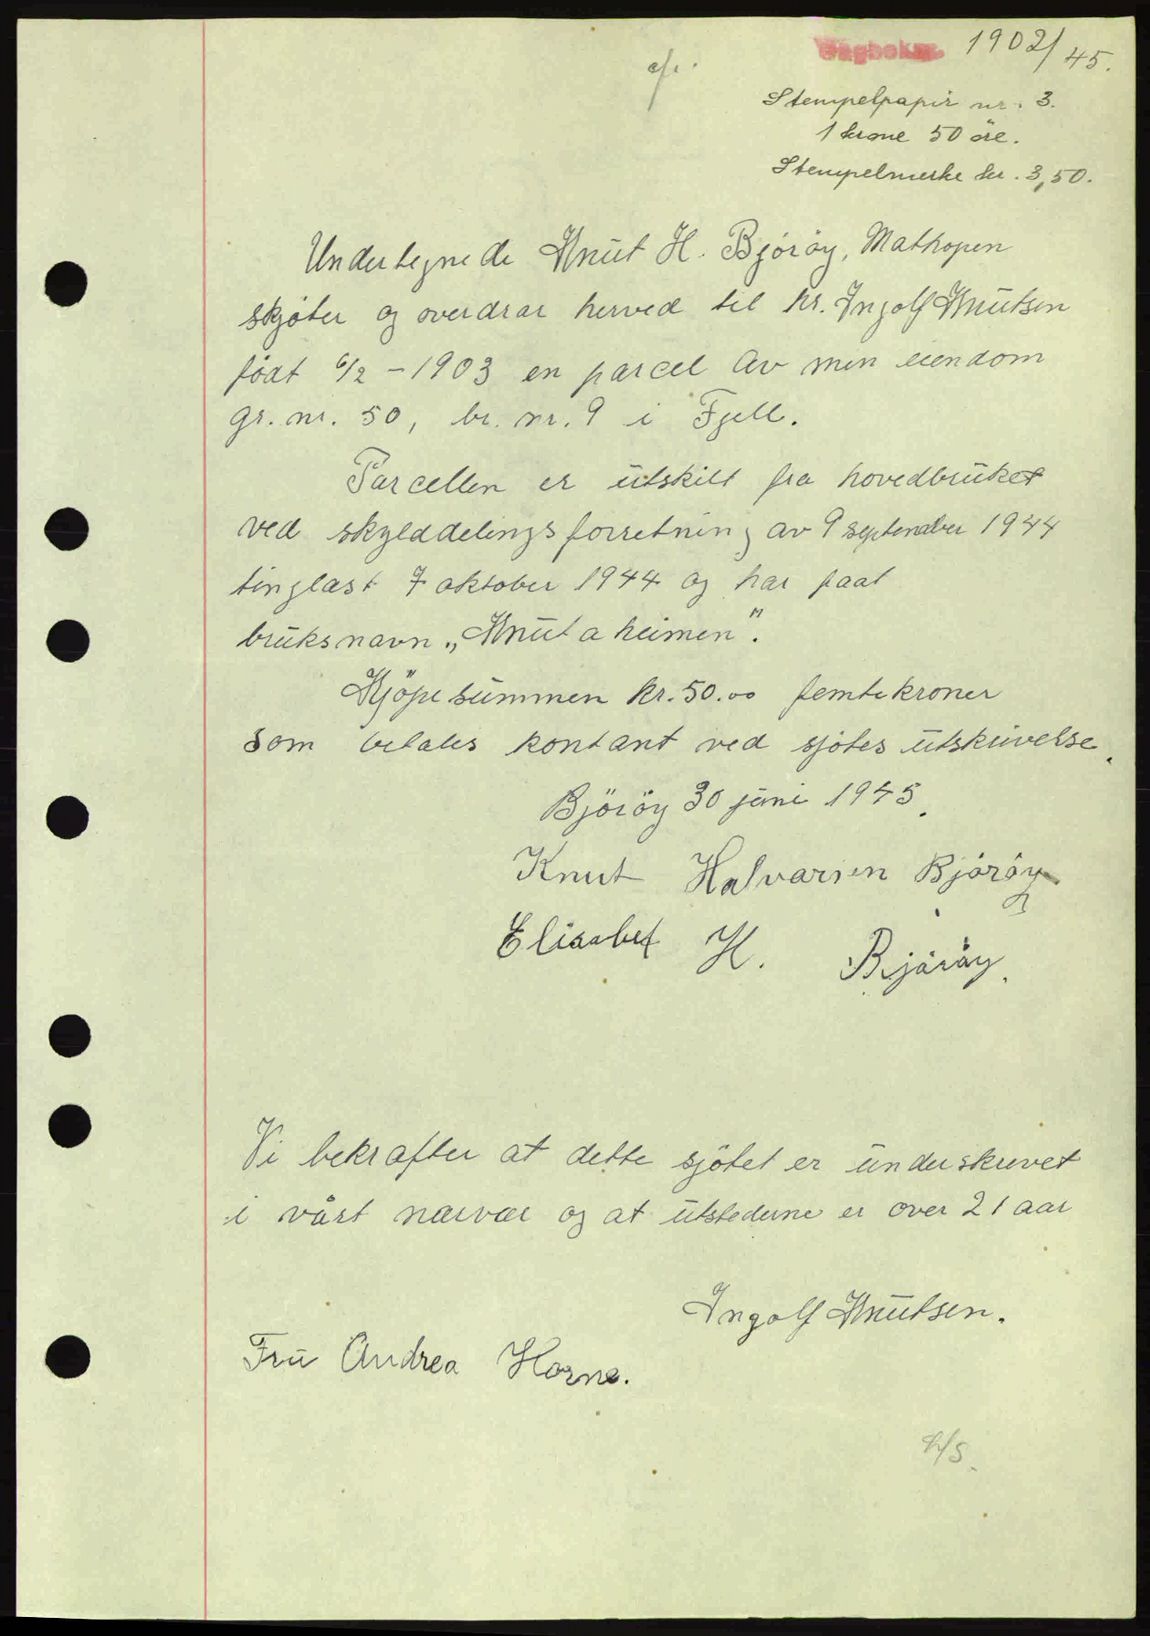 Dagboknr. 1902/45.
Stempelpapir nr. 3.
1 krone 50 öre.
Stempelmerke kr. 3,50.
Undertegnede Knut H. Björöy, Mathopen
skjöter og overdrar herved til hr. Ingolf Knutsen
födt 6/2 - 1903 en parcel av min eiendom
gr. nr. 50, br. nr. 9 i Fjell.
Parcellen er utskilt fra hovedbruket
ved skylddelingsforretning av 9 september 1944
tinglæst 7 oktober 1944 og har faat
bruksnavn „Knutaheimen".
Kjöpesummen kr. 50.00 femtikroner
som betales kontant ved sjötes utskrivelse.
Björöy 30 juni 1945.
Knut Halvarsen Björöy
Elisabet H. Björöy.
Vi bekræfter at dette sjötet er underskrevet
i vårt nærvær og at utstederne er over 21 aar
Ingolf Knutsen.
Fru Andrea Horne.